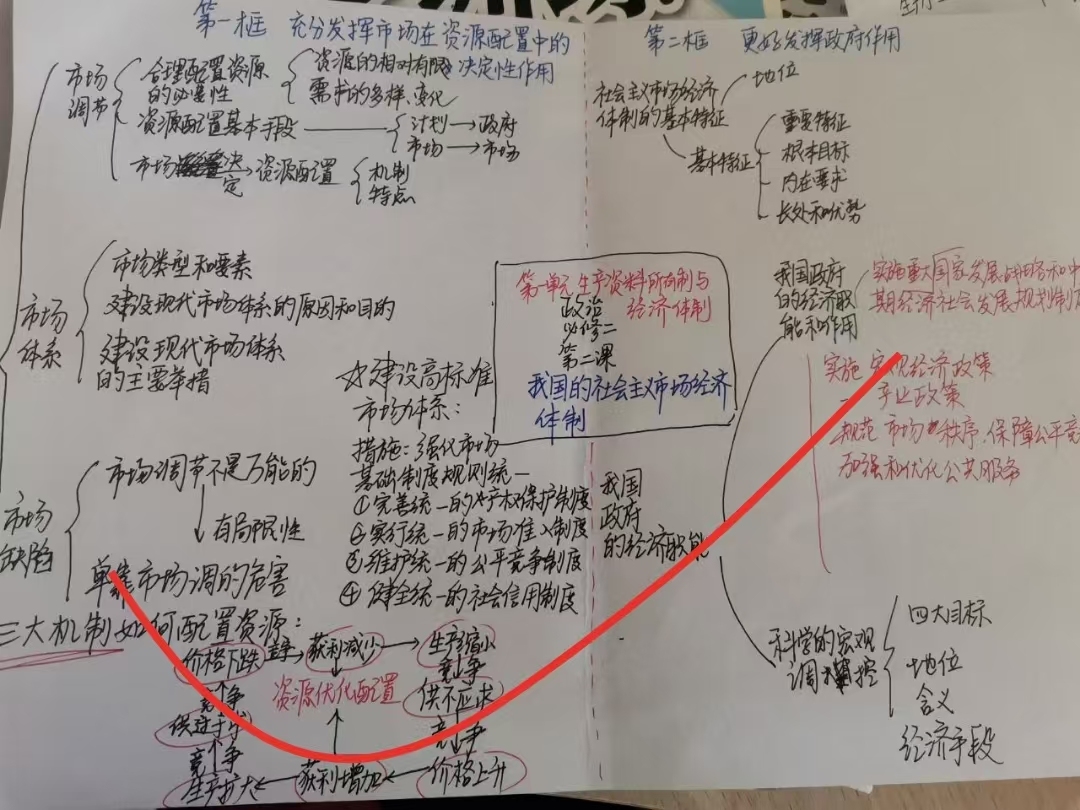 第一框 充分发挥市场在资源配置中的
决定性作用
市场
调节
合理配置资源
的必要性
资源的相对有限
需求的多样、变化
资源配置基本手段
计划→政府
市场→市场
市场决定→资源配置
机制
特点
市场
体系
市场类型和要素
建设现代市场体系的原因和目的
建设现代市场体系
的主要举措
☆建设高标准
市场体系：
措施：强化市场
基础制度规则统一
①完善统一的产权保护制度
②实行统一的市场准入制度
③维护统一的公平竞争制度
④健全统一的社会信用制度
市场
缺陷
市场调节不是万能的
↓有局限性
单靠市场调的危害
三大机制如何配置资源：
价格下跌
竞争→获利减少→生产缩小
竞争
竞争
资源优化配置
供不应求
供过于求
竞争
竞争
生产扩大←获利增加←价格上升
第一单元 生产资料所有制与
经济体制
政治
必修二
第二课
我国的社会主义市场经济
体制
第二框 更好发挥政府作用
社会主义市场经济
体制的基本特征
地位
基本特征
重要特征
根本目标
内在要求
长处和优势
我国
政府
的经济职能
我国政府
的经济职
能和作用
实施重大国家发展战略和中
期经济社会发展规划制
实施 宏观经济政策
产业政策
规范市场秩序、保障公平竞
加强和优化公共服务
科学的宏观
调控
四大目标
地位
含义
经济手段